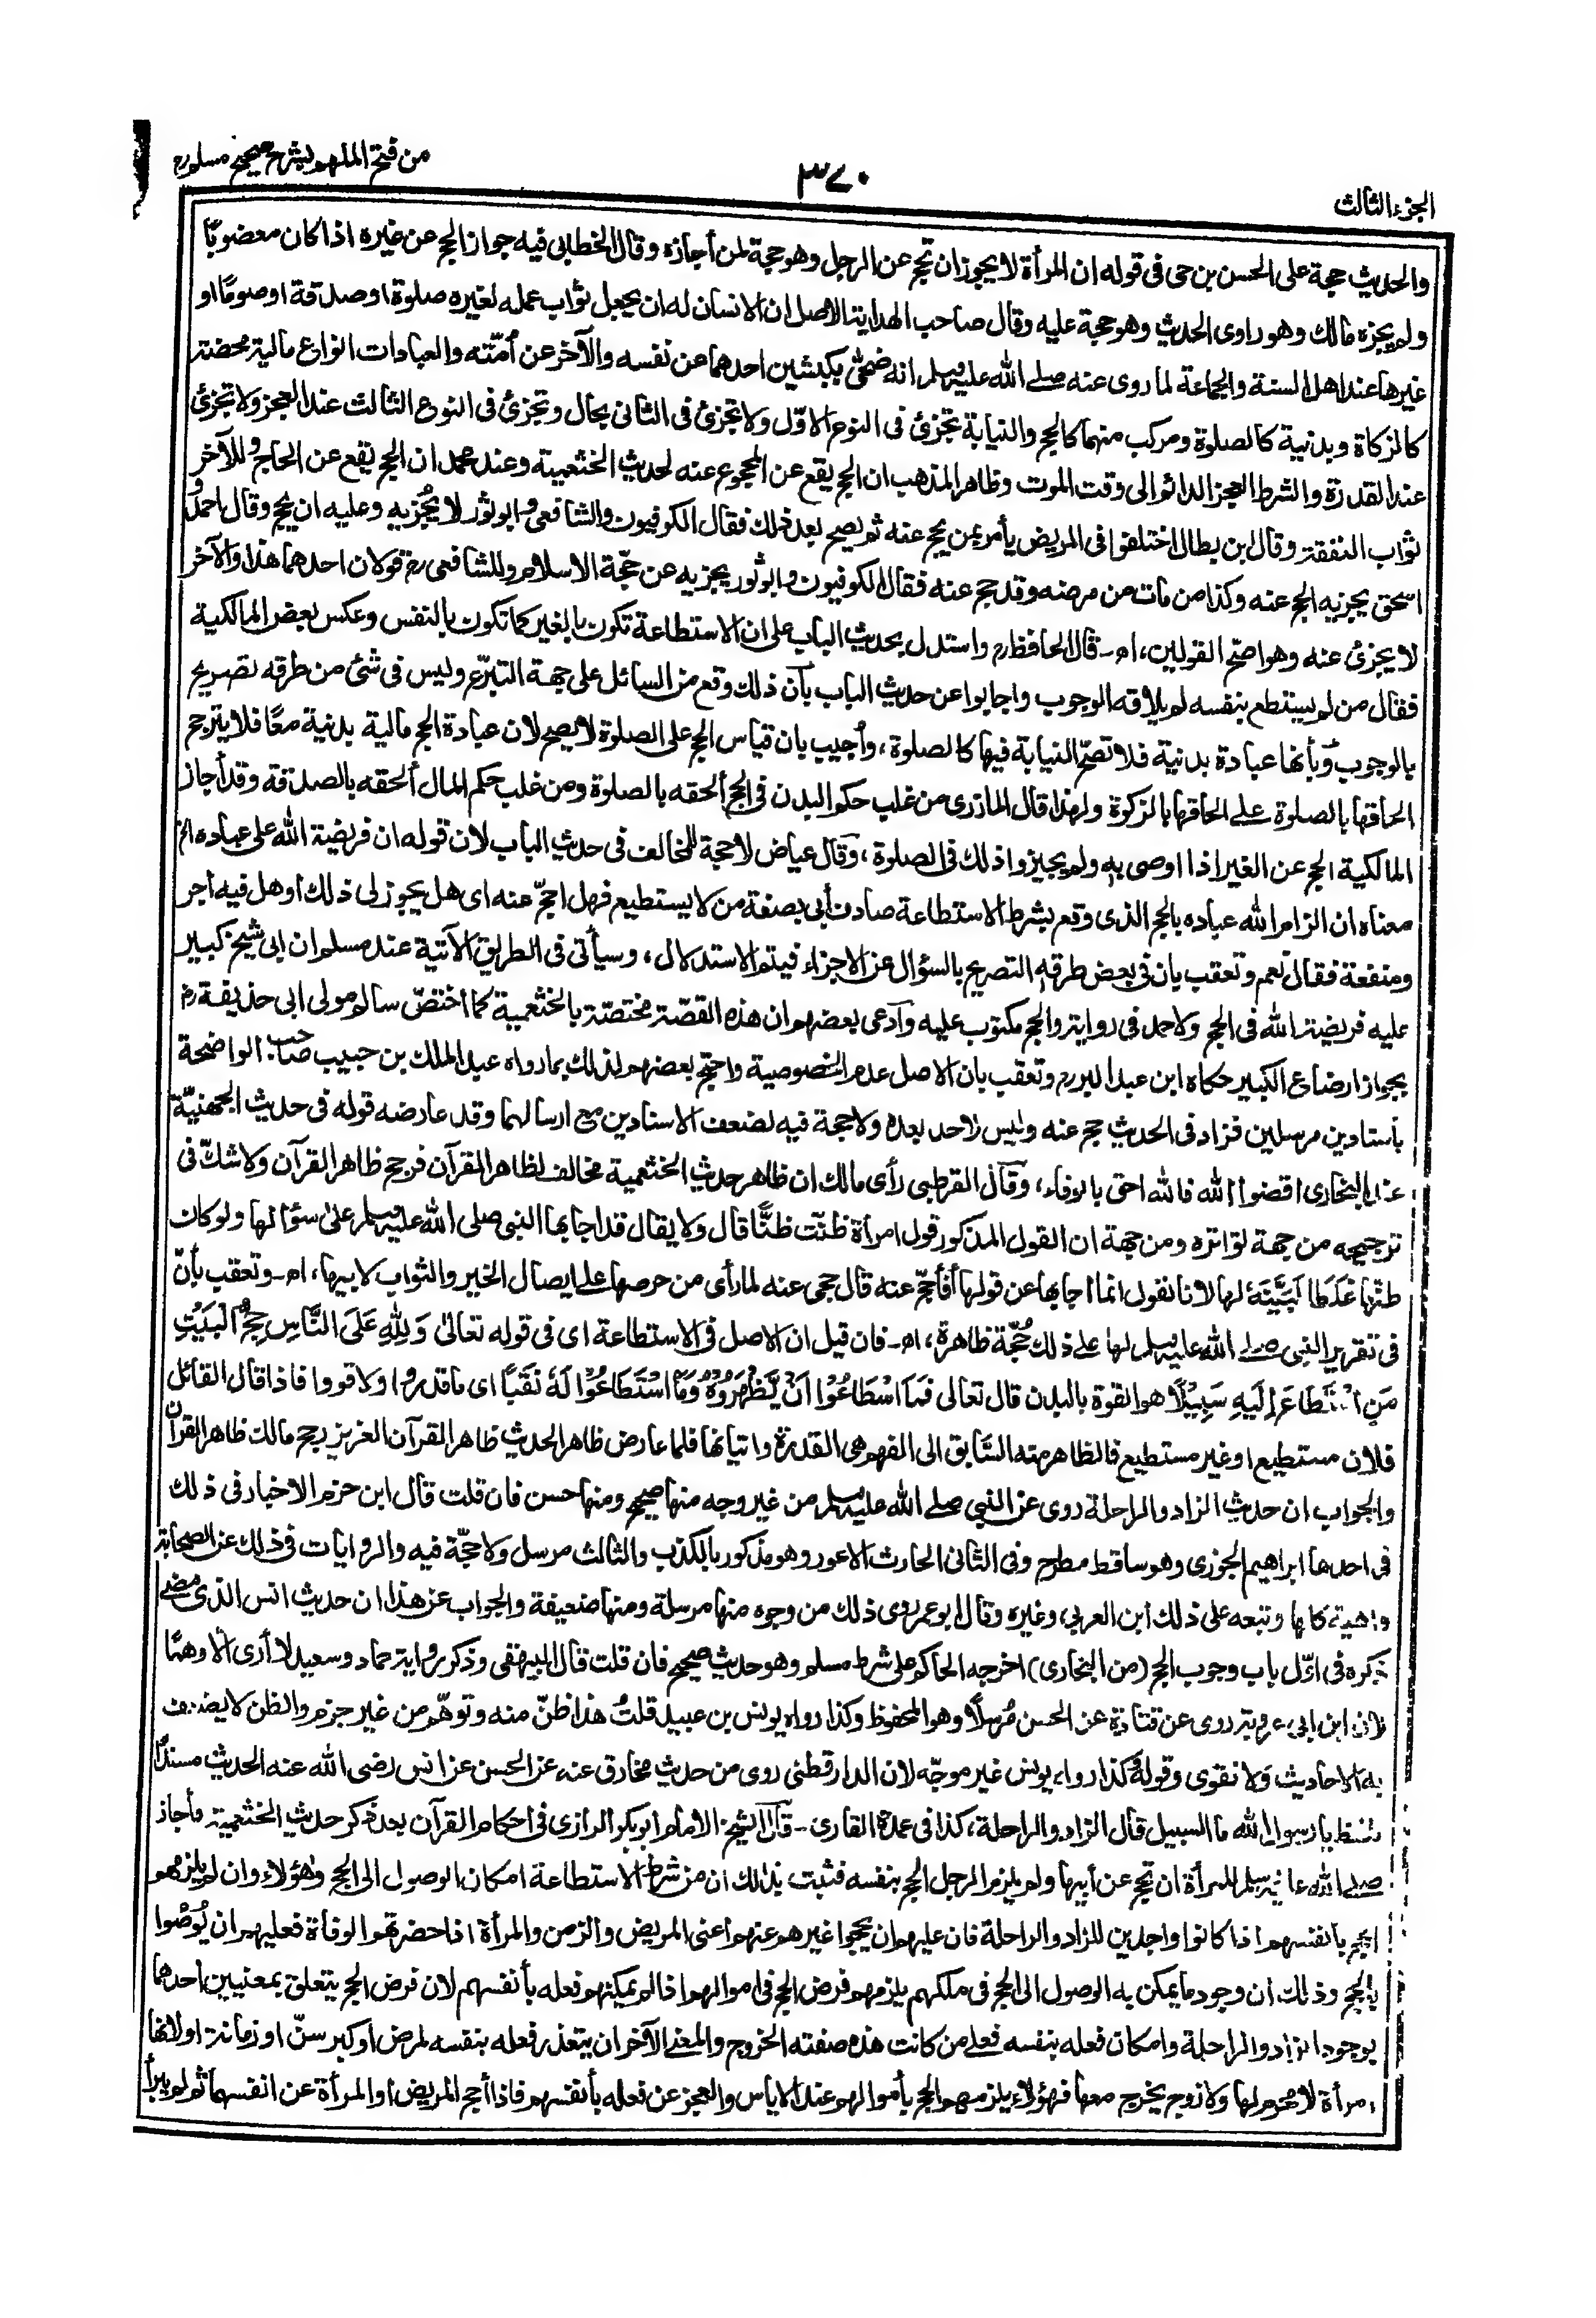 من فتح الملهم بشرح صحيح مسلم رح
٣٧٠
الجزء الثالث
والحديث حجة على الحسن بن حى فى قوله ان المرأة لا يجوز ان تحج عن الرجل وهو حجة لمن أجازه وقال الخطابى فيه جواز الحج عن غيره اذا كان معضوبًا
ولم يجزه مالك وهو راوى الحديث وهو حجة عليه وقال صاحب الهداية الاصل ان الانسان له ان يجعل ثواب عمله لغيره صلوة او صدقة او صومًا او
غيرها عند اهل السنة والجماعة لما روى عنه صلى الله عليه وسلم انه ضحّٰى بكبشين احدهما عن نفسه والآخر عن أمّته والعبادات انواع مالية محضة
كالزكاة وبدنية كالصلوة ومركب منهما كالحج والنيابة تجزئ فى النوع الاوّل ولا تجزئ فى الثانى بحال وتجزئ فى النوع الثالث عند العجز ولا تجزئ
عند القدرة والشرط العجز الدائم الى وقت الموت وظاهر المذهب ان الحج يقع عن المحجوج عنه لحديث الخثعمية وعند محمد ان الحج يقع عن الحاج وللآخر
ثواب النفقة وقال ابن بطال اختلفوا فى المريض يأمر بمن يحج عنه ثم يصح بعد ذلك فقال الكوفيون والشافعى وابو ثور لا يُجزيه وعليه ان يحج وقال احمد و
اسحق يجزيه الحج عنه وكذا من مات من مرضه وقد حج عنه فقال الكوفيون وابو ثور يجزيه عن حجّة الاسلام وللشافعى رح قولان احدهما هذا والآخر
لا يجزئ عنه وهو اصحّ القولين، اھ- قال الحافظ رح واستدل بحديث الباب على ان الاستطاعة تكون بالغير كما تكون بالنفس وعكس بعض المالكية
فقال من لم يستطع بنفسه لم يلاقه الوجوب واجابوا عن حديث الباب بأن ذلك وقع من السائل على جهة التبرّع وليس فى شئ من طرقه تصريح
بالوجوب وبأنها عبادة بدنية فلا تصحّ النيابة فيها كالصلوة، وأجيب بان قياس الحج على الصلوة لا يصح لان عبادة الحج مالية بدنية معًا فلا يترجح
الحاقها بالصلوة على الحاقها بالزكوة ولهذا قال المازرى من غلب حكم البدن فى الحج ألحقه بالصلوة ومن غلب حكم المال ألحقه بالصدقة وقد أجاز
المالكية الحج عن الغير اذا اوصى به ولم يجيزوا ذلك فى الصلوة، وقال عياض لا حجة للمخالف فى حديث الباب لان قوله ان فريضة الله على عباده الخ
معناه ان الزام الله عباده بالحج الذى وقع بشرط الاستطاعة صادف أبى بصفة من لا يستطيع فهل احجّ عنه اى هل يجوز لى ذلك او هل فيه اجر
ومنفعة فقال نعم وتعقب بان فى بعض طرقه التصريح بالسؤال عن الاجزاء فيتم الاستدلال، وسيأتى فى الطريق الآتية عند مسلم ان ابى شيخ كبير
عليه فريضة الله فى الحج ولاحمد فى رواية والحج مكتوب عليه وادعى بعضهم ان هذه القصّة مختصّة بالخثعمية كما اختصّ سالم مولى ابى حذيفة رض
بجواز ارضاع الكبير حكاه ابن عبد البر رح وتعقب بان الاصل عدم الخصوصية واحتج بعضهم لذلك بما رواه عبد الملك بن حبيب صاحب الواضحة
بأسنادين مرسلين فزاد فى الحديث حج عنه وليس لاحد بعده ولا حجة فيه لضعف الاسنادين مع ارسالهما وقد عارضه قوله فى حديث الجهنيّة
عند البخارى اقضوا الله فالله احق بالوفاء، وقال القرطبى رأى مالك ان ظاهر حديث الخثعمية مخالف لظاهر القرآن فرجح ظاهر القرآن ولا شكّ فى
ترجيحه من جهة تواتره ومن جهة ان القول المذكور قول امرأة ظنّت ظنًّا قال ولا يقال قد اجابها النبى صلى الله عليه وسلم على سؤالها ولو كان
ظنّها غلطا لبيّنه لها لانا نقول انما اجابها عن قولها أفأحجّ عنه قال حجى عنه لما رأى من حرصها على ايصال الخير والثواب لابيها، اھ- وتعقب بأنّ
فى تقرير النبى صلى الله عليه وسلم لها على ذلك حُجّة ظاهرة، اھ- فان قيل ان الاصل فى الاستطاعة اى فى قوله تعالى وَلِلّٰهِ عَلَى النَّاسِ حِجُّ الْبَيْتِ
مَنِ اسْتَطَاعَ إِلَيْهِ سَبِيْلًا هو القوة بالبدن قال تعالى فَمَا اسْطَاعُوْا اَنْ يَّظْهَرُوْهُ وَمَا اسْتَطَاعُوْا لَهٗ نَقْبًا اى ما قدروا ولا قووا فاذا قال القائل
فلان مستطيع او غير مستطيع فالظاهر منه السّابق الى الفهم هى القدرة واتيانها فلما عارض ظاهر الحديث ظاهر القرآن العزيز رجح مالك ظاهر القرآن
والجواب ان حديث الزاد والراحلة روى عن النبى صلى الله عليه وسلم من غير وجه منها صحيح ومنها حسن فان قلت قال ابن حزم الاخبار فى ذلك
فى احدها ابراهيم الجوزى وهو ساقط مطرح وفى الثانى الحارث الاعور وهو مذكور بالكذب والثالث مرسل ولا حجّة فيه والروايات فى ذلك عن الصحابة
واهية كلها وتبعه على ذلك ابن العربى وغيره وقال ابو عمر روى ذلك من وجوه منها مرسلة ومنها ضعيفة والجواب عن هذا ان حديث انس الذى مضى
ذكره فى اوّل باب وجوب الحج (من البخارى) اخرجه الحاكم على شرط مسلم وهو حديث صحيح فان قلت قال البيهقى وذكر رواية حماد وسعيد لا أرى الا وهمًا
لان ابن ابى عروبة روى عن قتادة عن الحسن مُرسلًا وهو المحفوظ وكذا رواه يونس بن عبيد قلتُ هذا ظنّ منه وتوهّم من غير جزم والظن لا يضعف
به الاحاديث ولا تقوى وقوله وكذا رواه يونس غير موجّه لان الدارقطنى روى من حديث مخارق عنه عن الحسن عن انس رضى الله عنه الحديث مسندًا
بلفظ يا رسول الله ما السبيل قال الزاد والراحلة، كذا فى عمدة القارى- قال الشيخ الامام ابو بكر الرازى فى احكام القرآن بعد ذكر حديث الخثعمية فأجاز
صلى الله عليه وسلم للمرأة ان تحج عن أبيها ولم يلزم الرجل الحج بنفسه فثبت بذلك ان من شرط الاستطاعة امكان الوصول الى الحج وهؤلاء وان لم يلزمهم
الحج بأنفسهم اذا كانوا واجدين للزاد والراحلة فان عليهم ان يحجوا غيرهم عنهم اعنى المريض والزمن والمرأة اذا حضرتهم الوفاة فعليهم ان يُوصُوا
بالحج وذلك ان وجود ما يمكن به الوصول الى الحج فى ملكهم يلزمهم فرض الحج فى اموالهم اذا لم يمكنهم فعله بأنفسهم لان فرض الحج يتعلق بمعنيين احدهما
بوجود الزاد والراحلة وامكان فعله بنفسه فعلى من كانت هذه صفته الخروج والمعنى الآخر ان يتعذر فعله بنفسه لمرض او كبر سنّ او زمانة او لانها
امرأة لا محرم لها ولا زوج يخرج معها فهؤلاء يلزمهم الحج بأموالهم عند الاياس والعجز عن فعله بأنفسهم فاذا أحج المريض او المرأة عن انفسهما ثم لم يبرأ